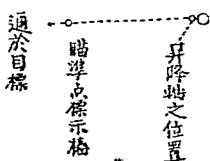 昇降軸之位置
瞄準点標示桿
通於目標